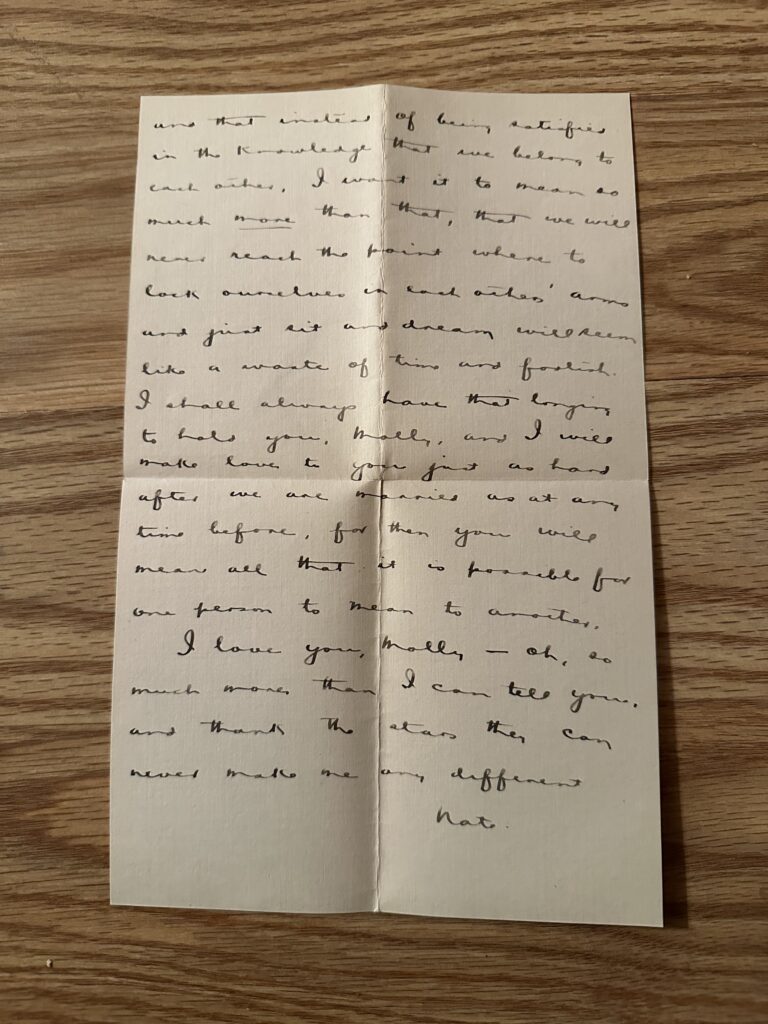 and that instead of being satisfied
in the knowledge that we belong to
each other, I want it to mean so
much more than that, that we will
never reach the point where to
lock ourselves in each others' arms
and just sit and dream will seem
like a waste of time and foolish.
I shall always have that longing
to hold you, Molly, and I will
make love to you just as hard
after we are married as at any
time before, for then you will
mean all that it is possible for
one person to mean to another.
I love you, Molly — oh, so
much more, than I can tell you,
and thank the stars they can
never make me any different
Nate.